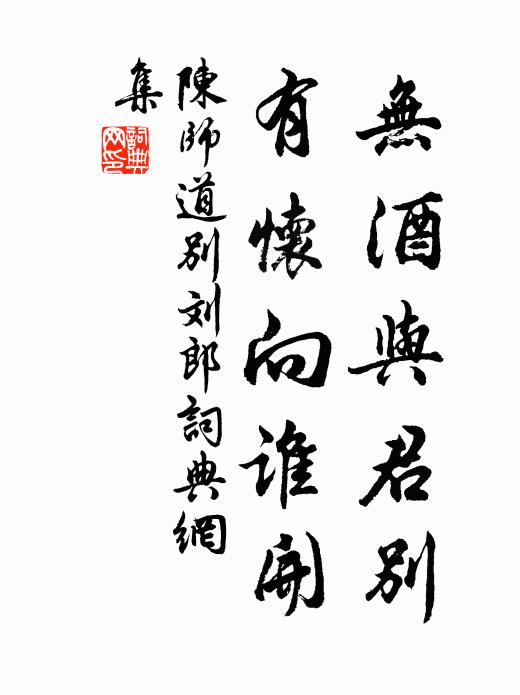 無酒與君別
有懷向谁開
陳師道別刘郎詞典網
集
詞典
网印